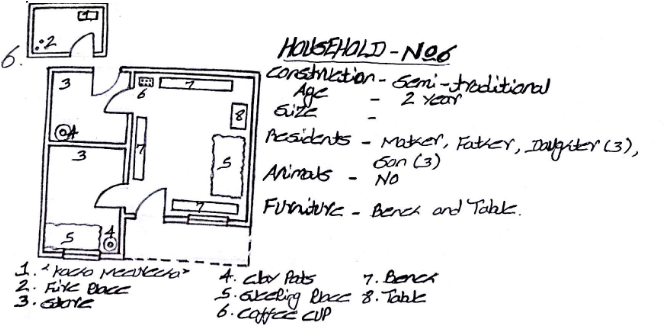 6.
1
2
HOUSEHOLD - No6
Construction - Semi-traditional
Age - 2 year
Size -
Residents - Mother, Father, Daughter (3),
Son (3)
Animals - No
Furniture - Bench and Table.
3
6
7
8
4
3
7
5
7
5
4
1.
2. Fire Place
3. Store
4. Clay Pots
5. Sleeping Place
6. Coffee CUP
7. Bench
8. Table